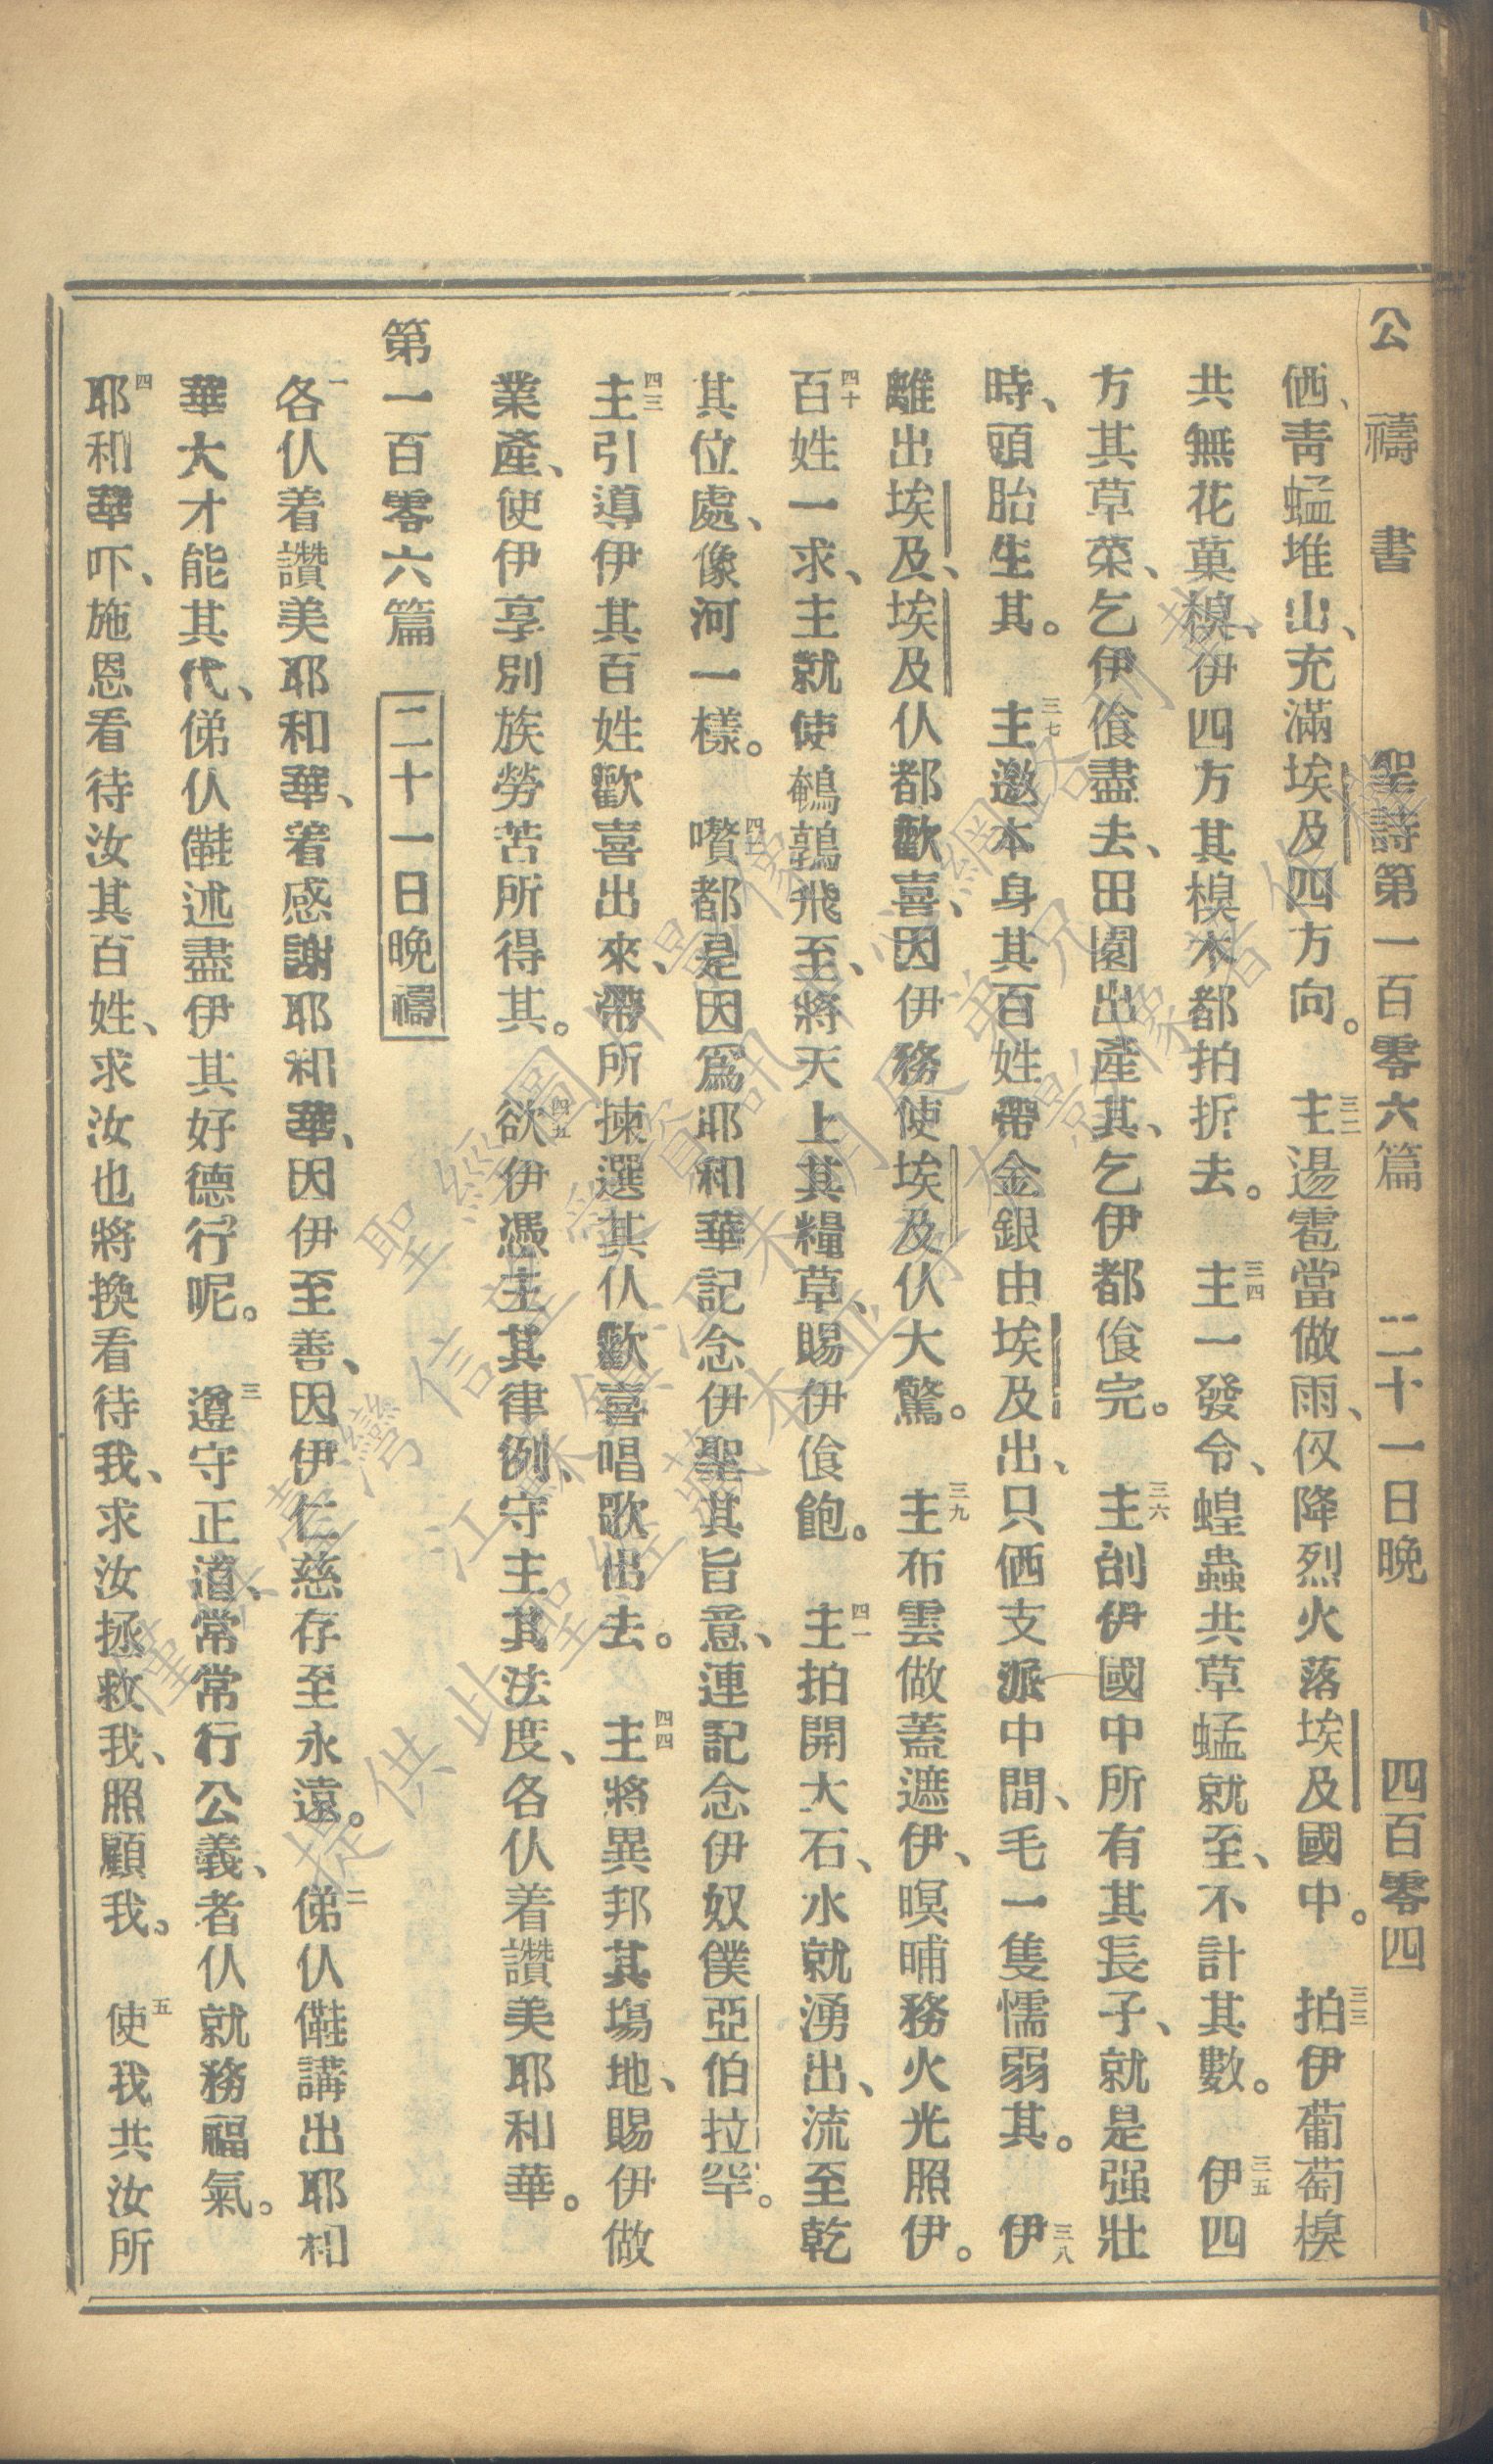 公禱書　聖詩第一百零六篇　二十一日晚　四百零四
𠉞、靑蜢堆出、充滿埃及四方向。　三二主盪雹當做雨、仅降烈火落埃及國中。　三三拍伊葡萄樣
共無花菓樣、伊四方其樣木都拍折去。　三四主一發令、蝗蟲共草蜢就至、不計其數。　三五伊四
方其草菜、乞伊飧盡去、田園出產其、乞伊都飧完。　三六主刣伊國中所有其長子、就是强壯
時、頭胎生其。　三七主邀本身其百姓帶金銀由埃及出、只𠉞支派中間、毛一隻懦弱其。　三八伊
離出埃及、埃及仈都歡喜、因伊務使埃及仈大驚。　三九主布雲做蓋遮伊、暝晡務火光照伊。
四十百姓一求、主就使鵪鶉飛至、將天上其糧草、賜伊飧飽。　四一主拍開大石、水就湧出、流至乾
其位處、像河一樣。　四二囋都是因爲耶和華記念伊聖其旨意、連記念伊奴僕亞伯拉罕。
四三主引導伊其百姓歡喜出來、帶所揀選其仈歡喜唱歌出去。　四四主將異邦其塲地、賜伊做
業產、使伊享別族勞苦所得其。　四五欲伊憑主其律例、守主其法度、各仈着讚美耶和華。
第一百零六篇　二十一日晚禱
一各仈着讚美耶和華、着感謝耶和華、因伊至善、因伊仁慈存至永遠。　二俤仈㒕講出耶和
華大才能其代、俤仈㒕述盡伊其好德行呢。　三遵守正道、常常行公義、者仈就務福氣。
四耶和華吓、施恩看待汝其百姓、求汝也將換看待我、求汝拯救我、照顧我。　五使我共汝所